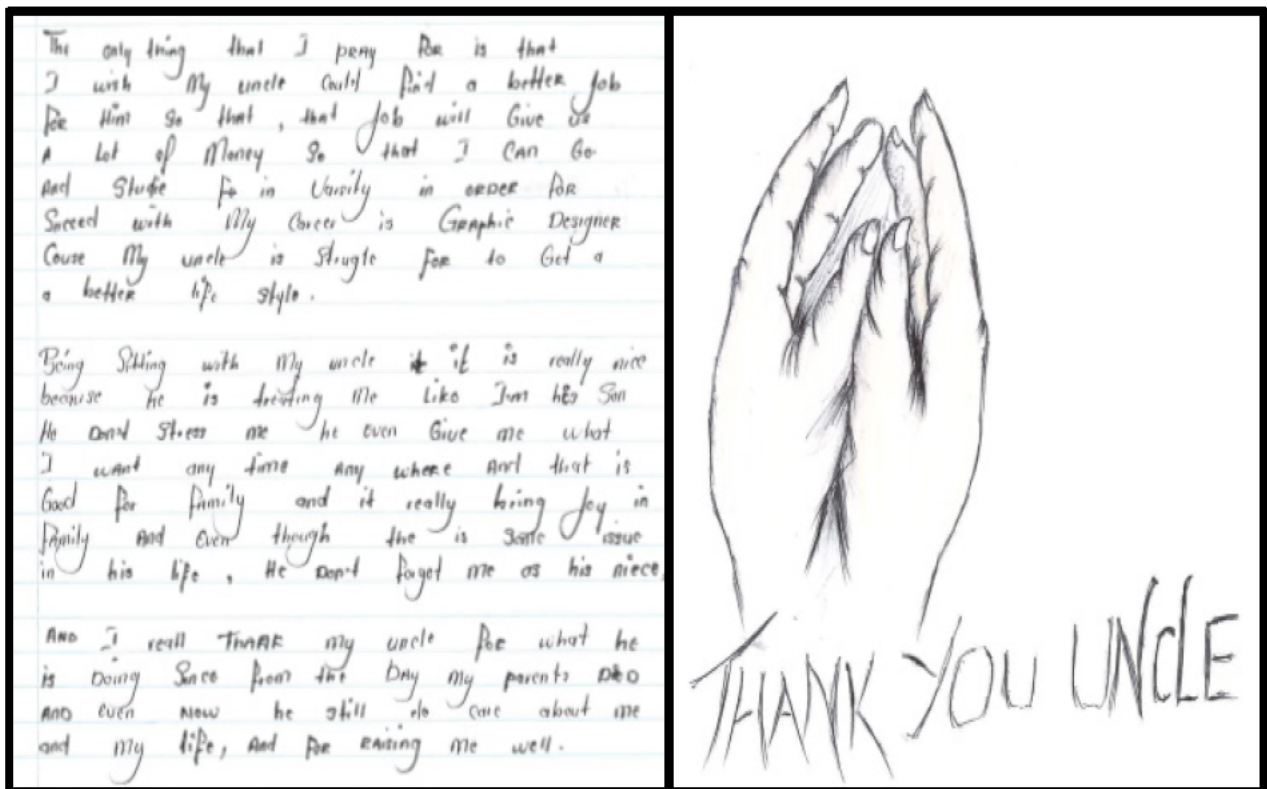 The only thing that I pray for is that
I wish My uncle Could find a better job
for Him so that, that job will Give us
A Lot of Money So that I CAN Go
And Studie in Varsity in ORDER FOR
Succed with My Career is GRAPHIC DESIGNER
Couse My uncle is Strugle FOR to Get a
a better life style.
Being Sitting with my uncle it is really nice
because he is treating Me Like I'm his Son
He Don't Stress me he even Give me what
I WANT any time Any where And that is
Good for family and it really bring Joy in
Family And Even though the is some issue
in his life, He Don't forget me as his niece,
AND I reall THANK my uncle for what he
is Doing Since from the DAY my parents
AND even NOW he still do care about me
and my life, And for RAISING Me well.
THANK YOU UNCLE